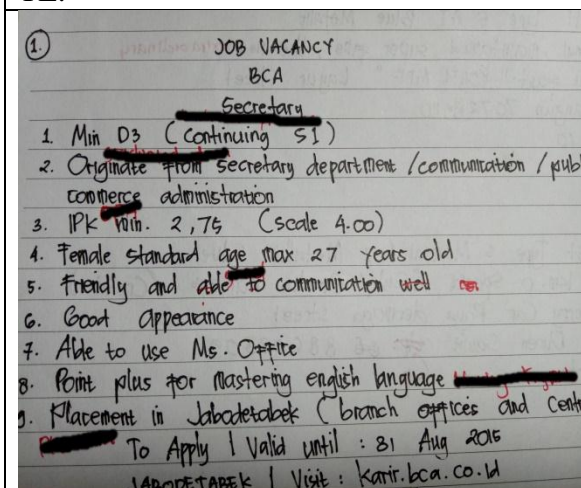 1.
JOB VACANCY
BCA
Secretary
1. Min D3 (Continuing S1)
2. Originate from secretary department / communication / pub
commerce administration
3. IPK min. 2,75 (scale 4.00)
4. Female standard age max 27 years old
5. Friendly and able to communication well
6. Good appearance
7. Able to use Ms. Office
8. Point plus for mastering english language
9. Placement in Jabodetabek (branch offices and Cent
To Apply | Valid until : 31 Aug 2015
JABODETABEK | Visit : karir.bca.co.id